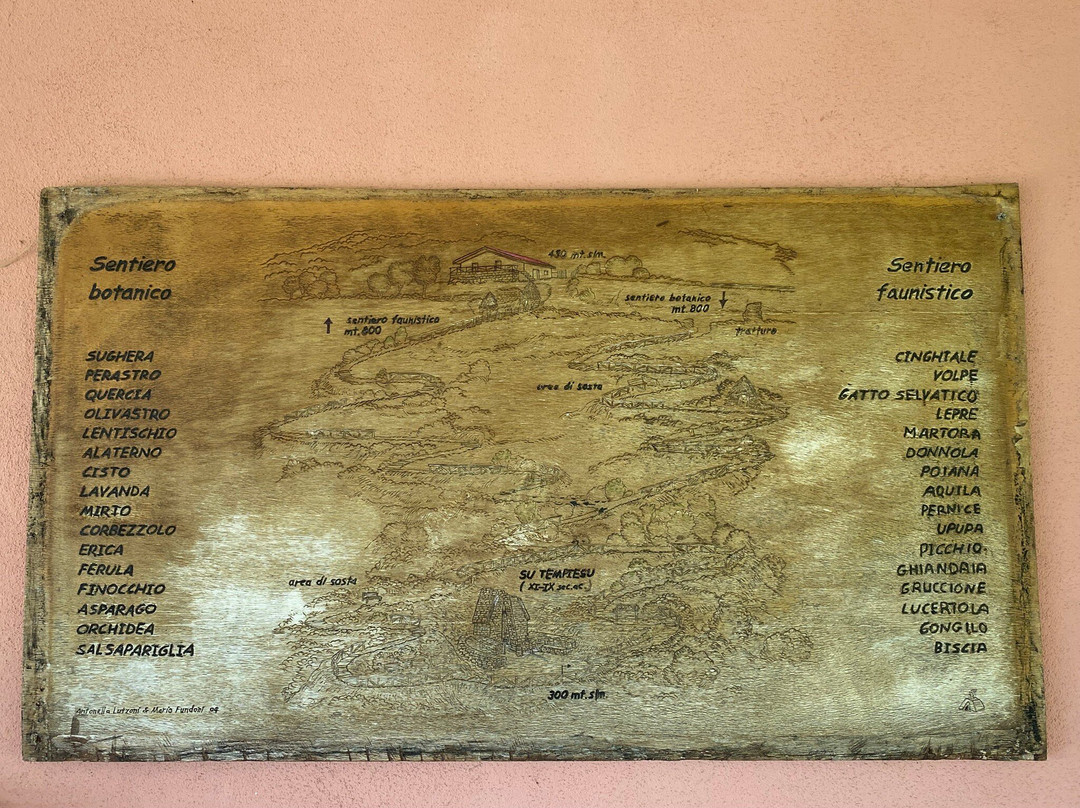 Sentiero
botanico
SUGHERA
PERASTRO
QUERCIA
OLIVASTRO
LENTISCHIO
ALATERNO
CISTO
LAVANDA
MIRTO
CORBEZZOLO
ERICA
FERULA
FINOCCHIO
ASPARAGO
ORCHIDEA
SALSAPARIGLIA
450 mt. slm.
sentiero botanico
mt. 800
sentiero faunistico
mt. 800
tratturo
area di sosta
area di sosta
SU TEMPIESU
( XI-IX sec. ac. )
300 mt. slm.
Sentiero
faunistico
CINGHIALE
VOLPE
GATTO SELVATICO
LEPRE
MARTORA
DONNOLA
POIANA
AQUILA
PERNICE
UPUPA
PICCHIO
GHIANDAIA
GRUCCIONE
LUCERTOLA
GONGILO
BISCIA
Antonella Lutzoni & Mario Fundoni 04